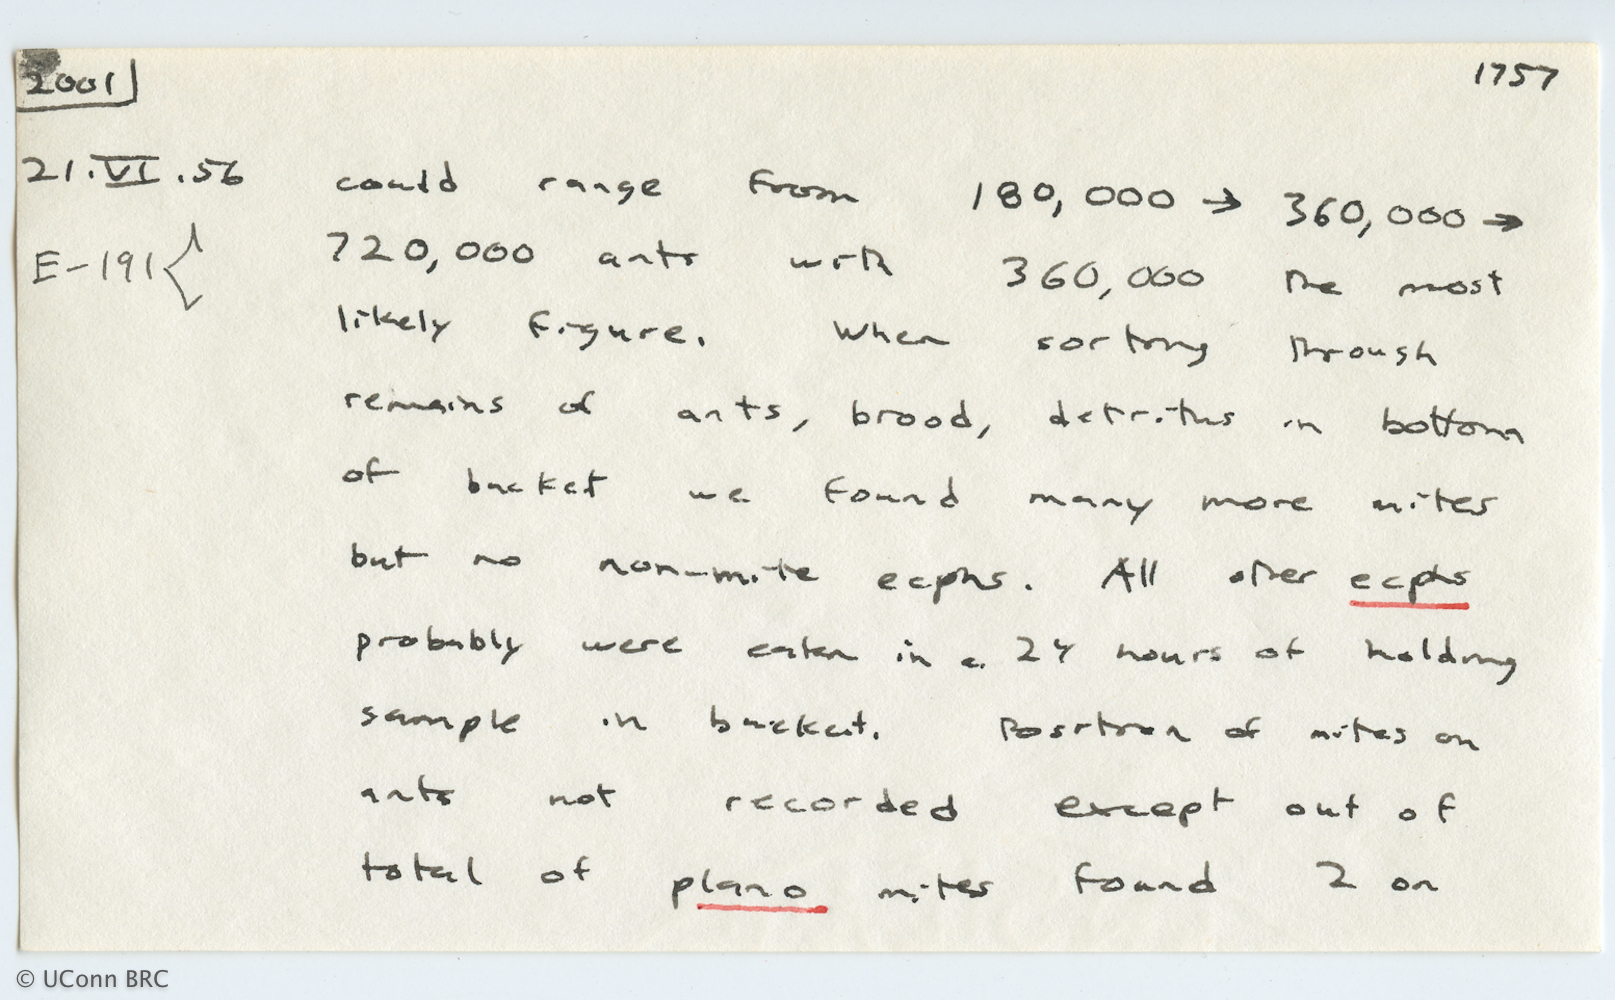 2001
1757
21.VI.56
E-191
could range from 180,000 → 360,000 →
720,000 ants with 360,000 the most
likely figure. When sorting through
remains of ants, brood, detritus in bottom
of bucket we found many more mites
but no non-mite ecphs. All other ecphs
probably were eaten in c. 24 hours of holding
sample in bucket. Position of mites on
ants not recorded except out of
total of plano mites found 2 on
© UConn BRC